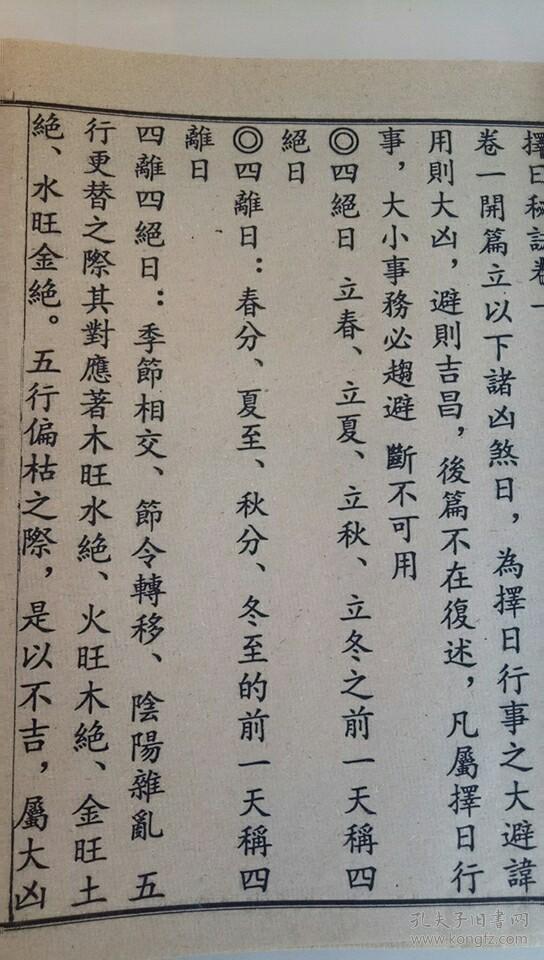 擇日秘訣卷一
卷一開篇立以下諸凶煞日，為擇日行事之大避諱
用則大凶，避則吉昌，後篇不在復述，凡屬擇日行
事，大小事務必趨避 斷不可用
◎四絕日 立春、立夏、立秋、立冬之前一天稱四
絕日
◎四離日：春分、夏至、秋分、冬至的前一天稱四
離日
四離四絕日：季節相交、節令轉移、陰陽雜亂 五
行更替之際其對應著木旺水絕、火旺木絕、金旺土
絕、水旺金絕。五行偏枯之際，是以不吉，屬大凶
孔夫子旧书网
www.kongfz.com